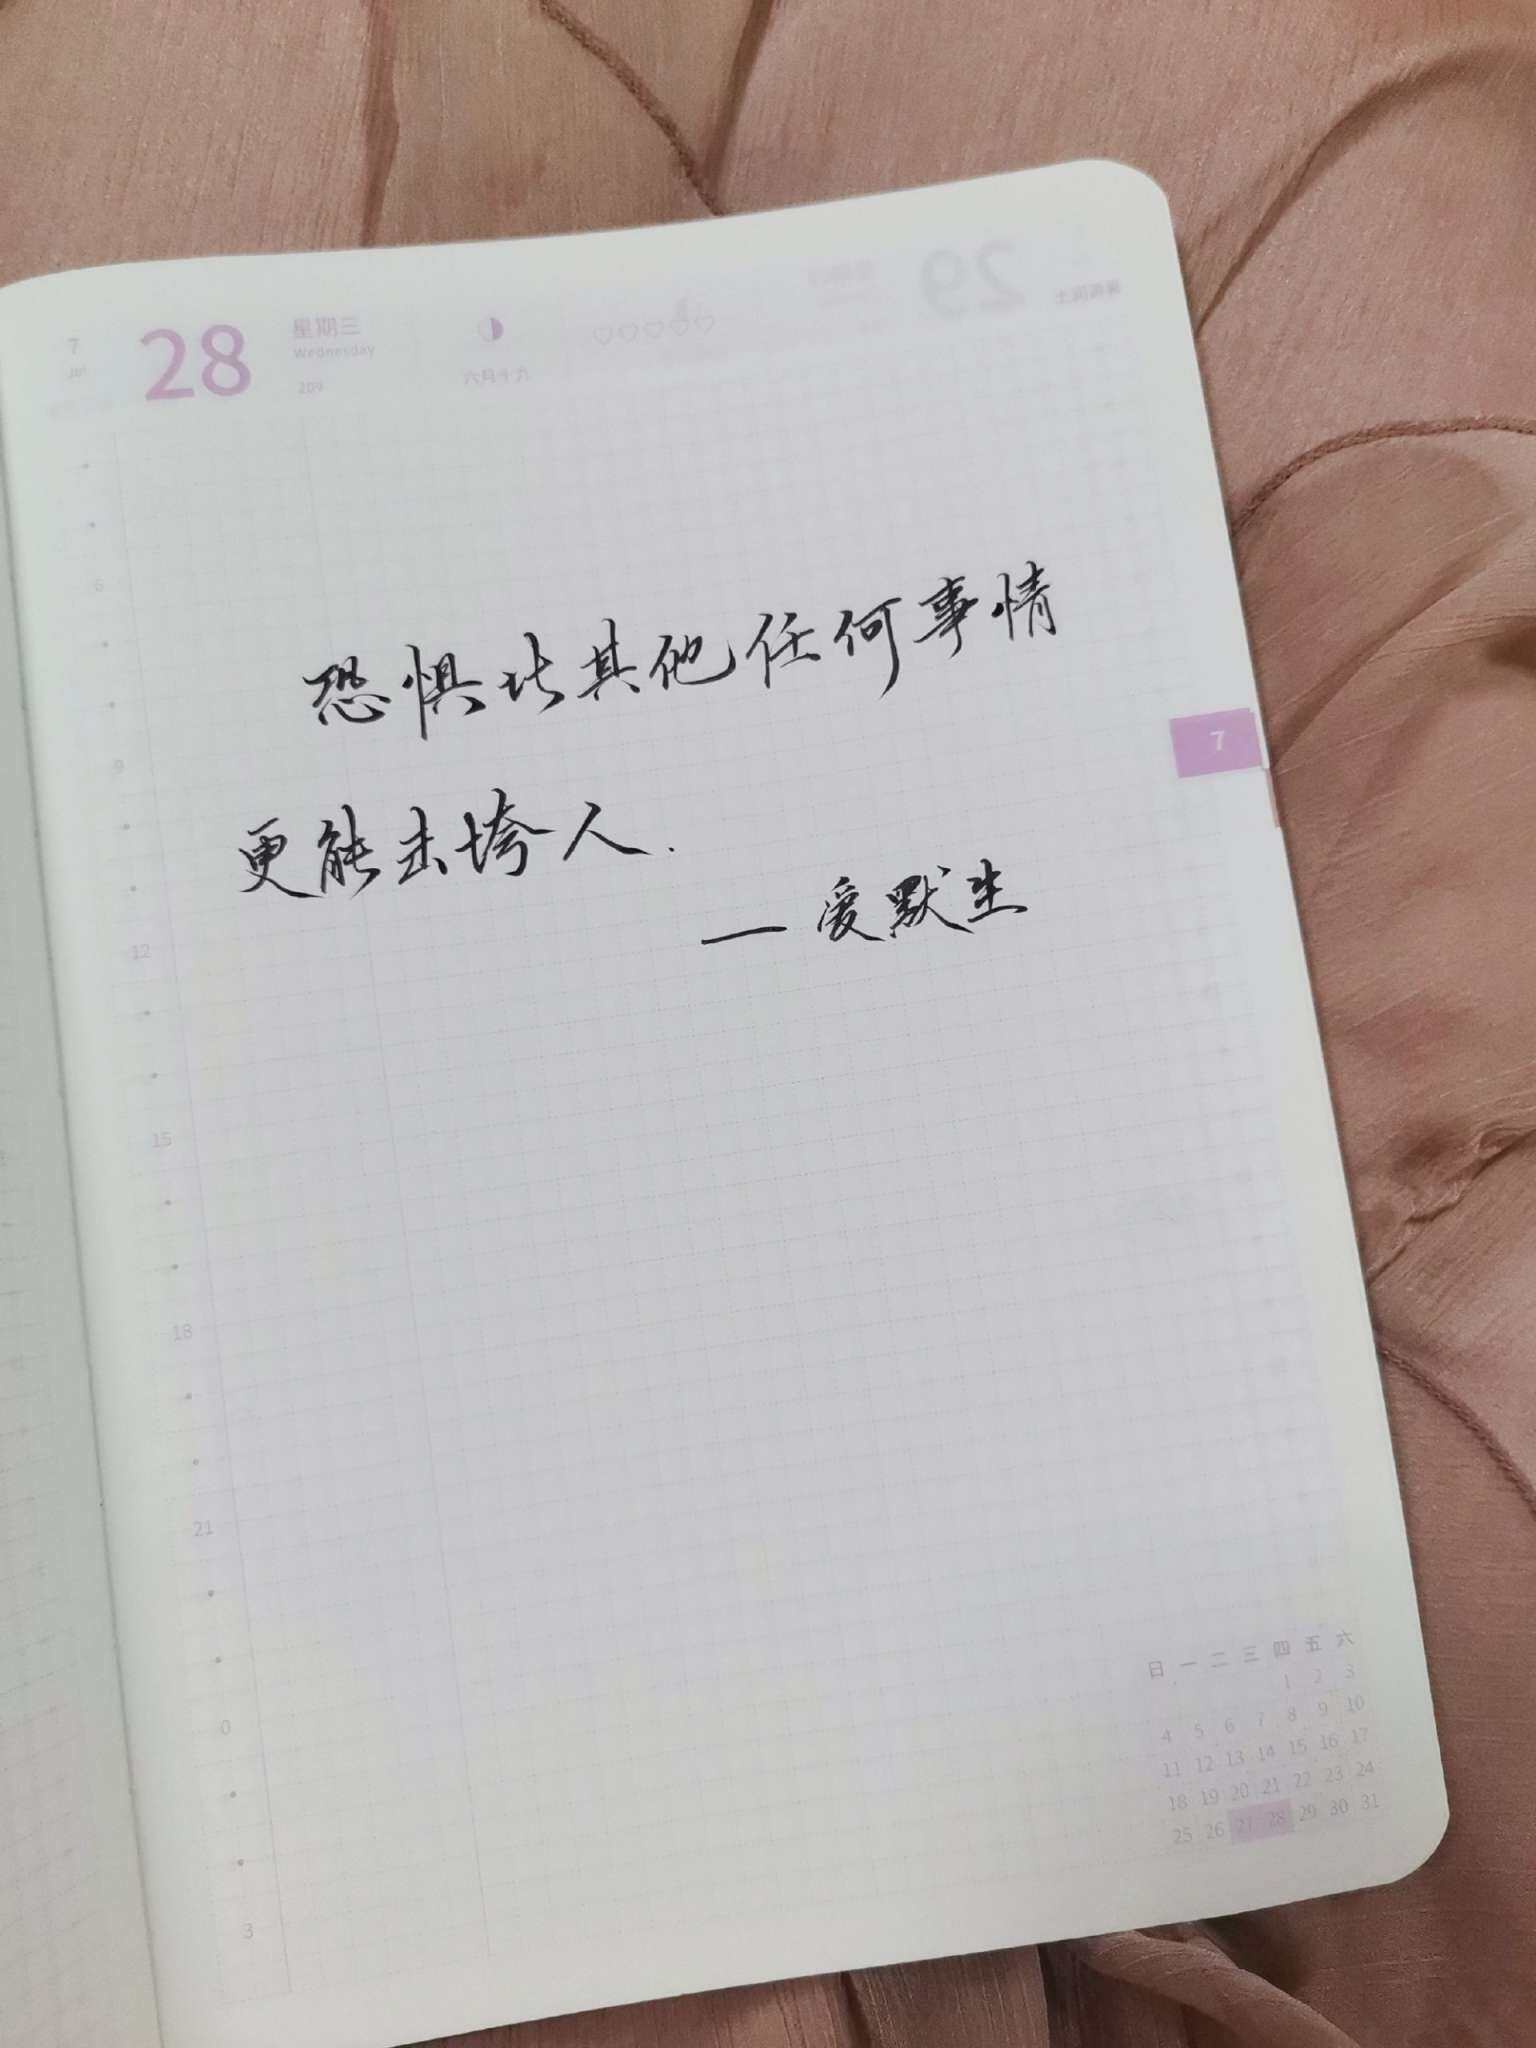 7 28 星期三
Jul Wednesday
209 六月十九
29
恐惧比其他任何事情
更能击垮人.
— 爱默生
7
6
9
12
15
18
21
0
3
日 一 二 三 四 五 六
1 2 3
4 5 6 7 8 9 10
11 12 13 14 15 16 17
18 19 20 21 22 23 24
25 26 27 28 29 30 31